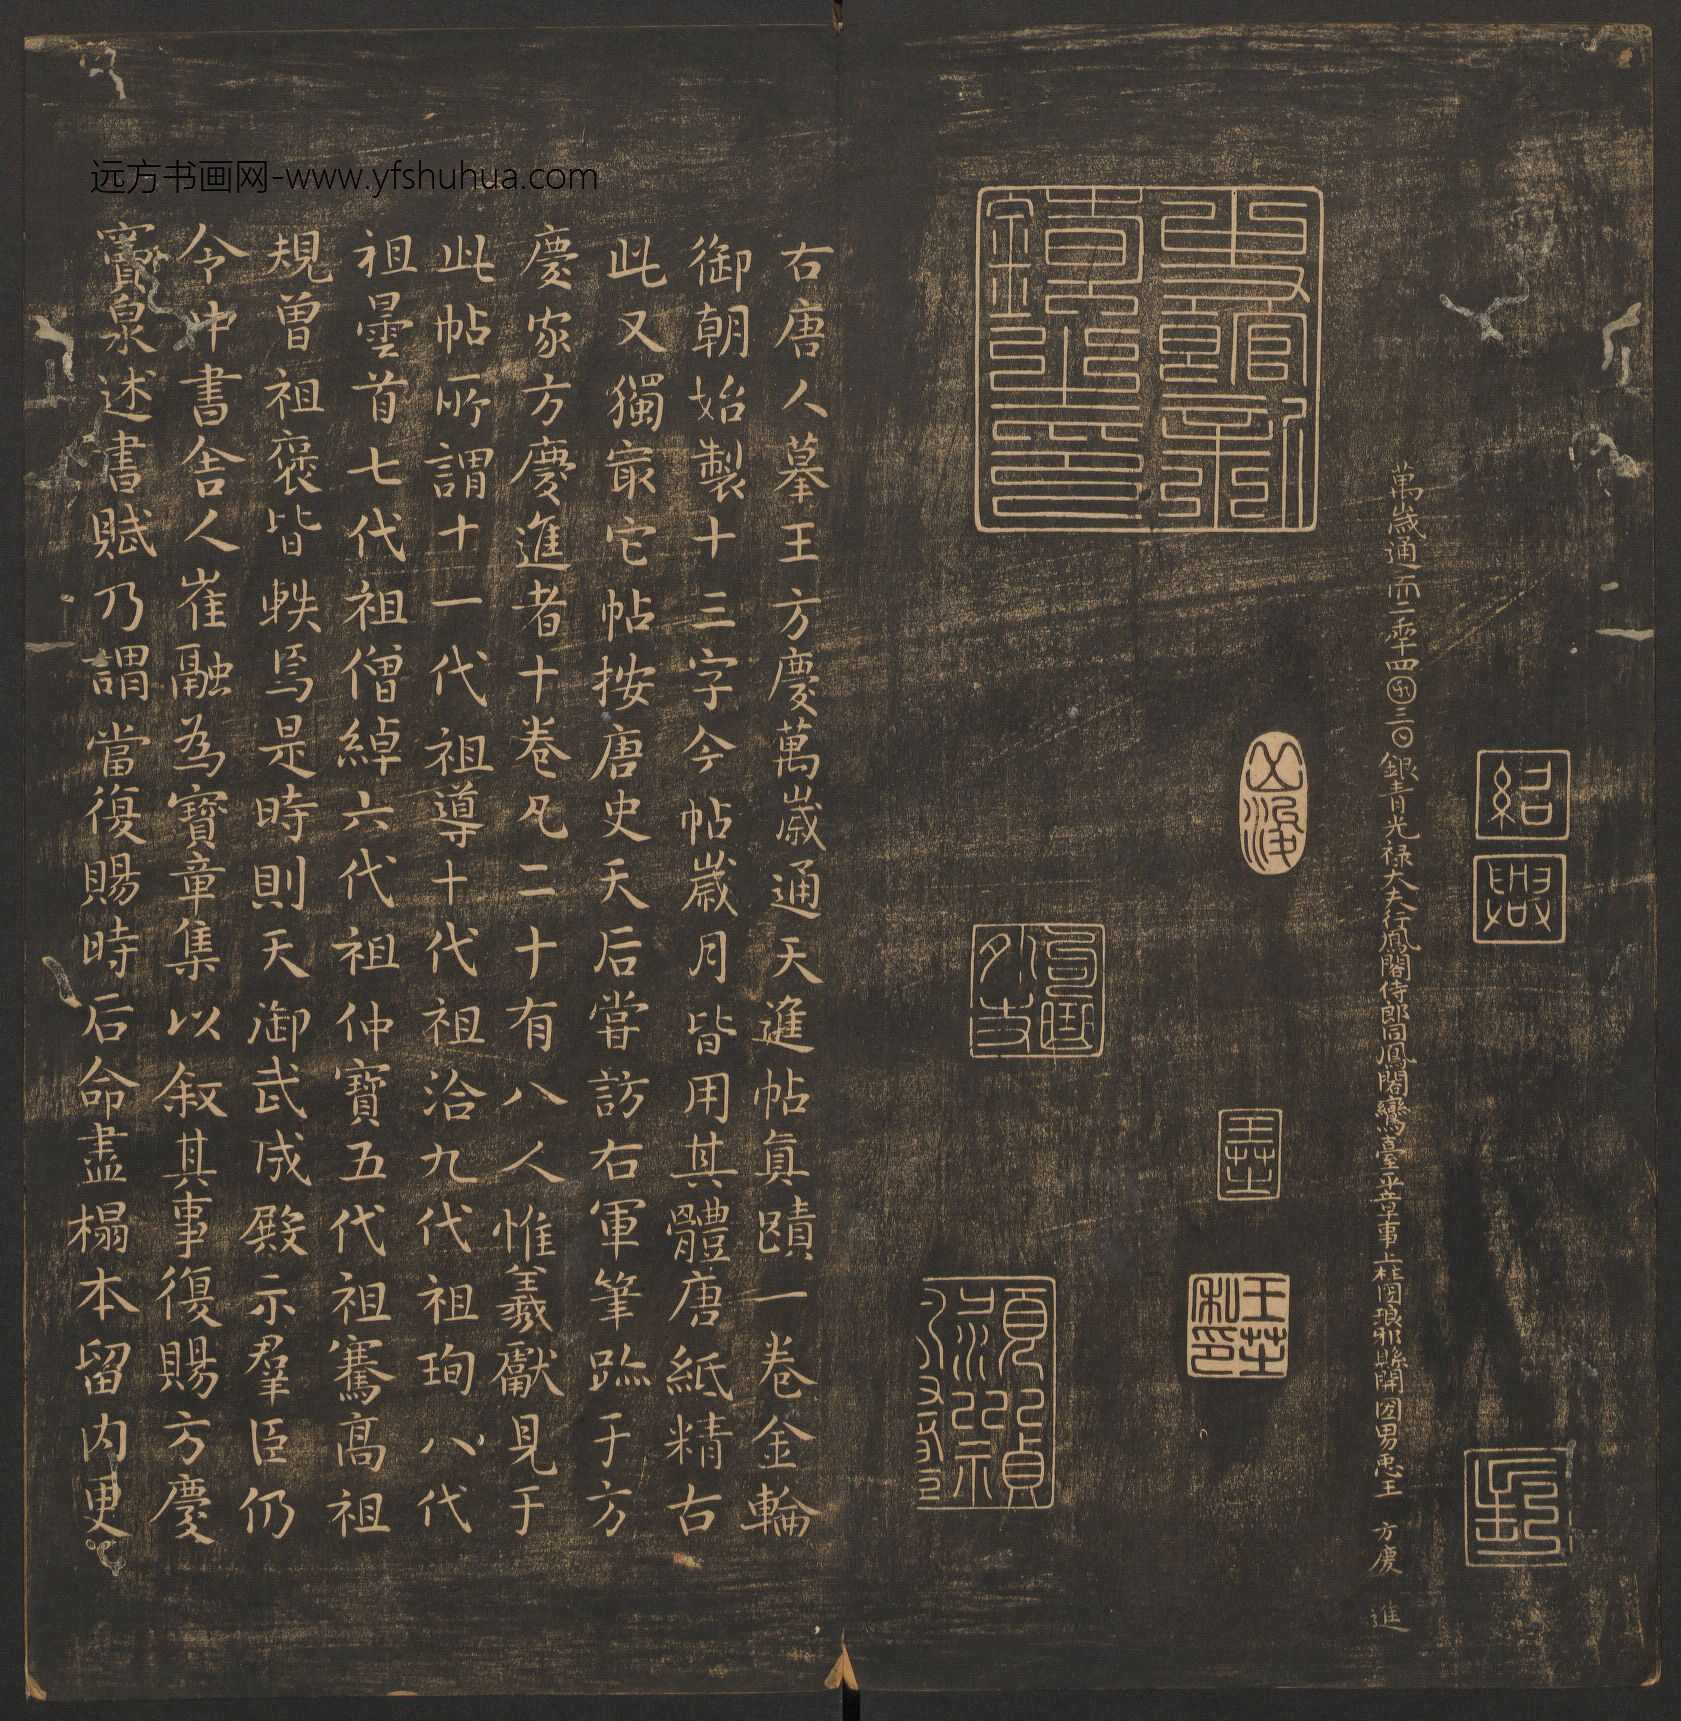 萬歲通𠀑二秊四𠥱三〇銀青光禄大夫行鳳閣侍郎同鳳閣鸞臺平章事上柱國琅邪縣開國男𢘑王方慶進
紹興
王芷
王芷私印
項源漢
右唐人摹王方慶萬歲通天進帖真蹟一卷金輪
御朝始製十三字今帖歲月皆用其體唐紙精古
此又獨冣它帖按唐史天后嘗訪右軍筆跡于方
慶家方慶進者十卷凡二十有八人惟羲獻見于
此帖所謂十一代祖導十代祖洽九代祖珣八代
祖曇首七代祖僧綽六代祖仲寶五代祖騫高祖
規曾祖褒皆軼焉是時則天御武成殿示羣臣仍
令中書舍人崔融為寶章集以叙其事復賜方慶
竇泉述書賦乃謂當復賜時后命盡榻本留内更
远方书画网-www.yfshuhua.com